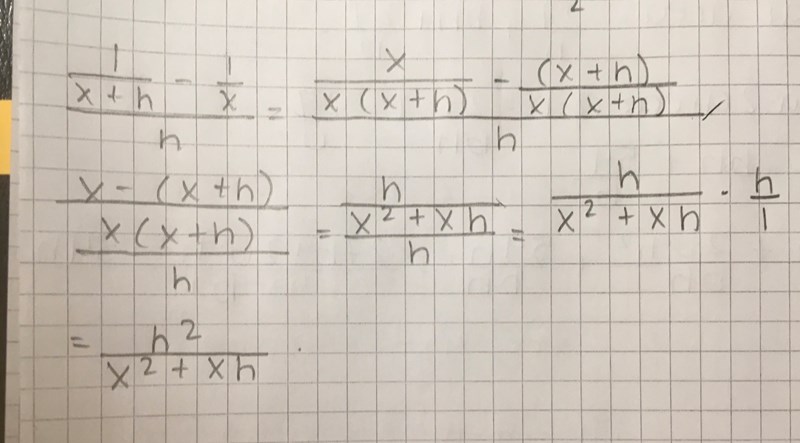 ((1/(x+h)) - (1/x))/h = ((x/(x(x+h))) - ((x+h)/(x(x+h))))/h
((x-(x+h))/(x(x+h)))/h = (h/(x²+xh))/h = h/(x²+xh) · h/1
= h²/(x²+xh).